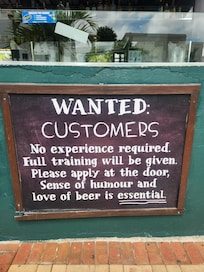 WANTED:
CUSTOMERS
No experience required.
Full training will be given.
Please apply at the door,
Sense of humour and
love of beer is essential.